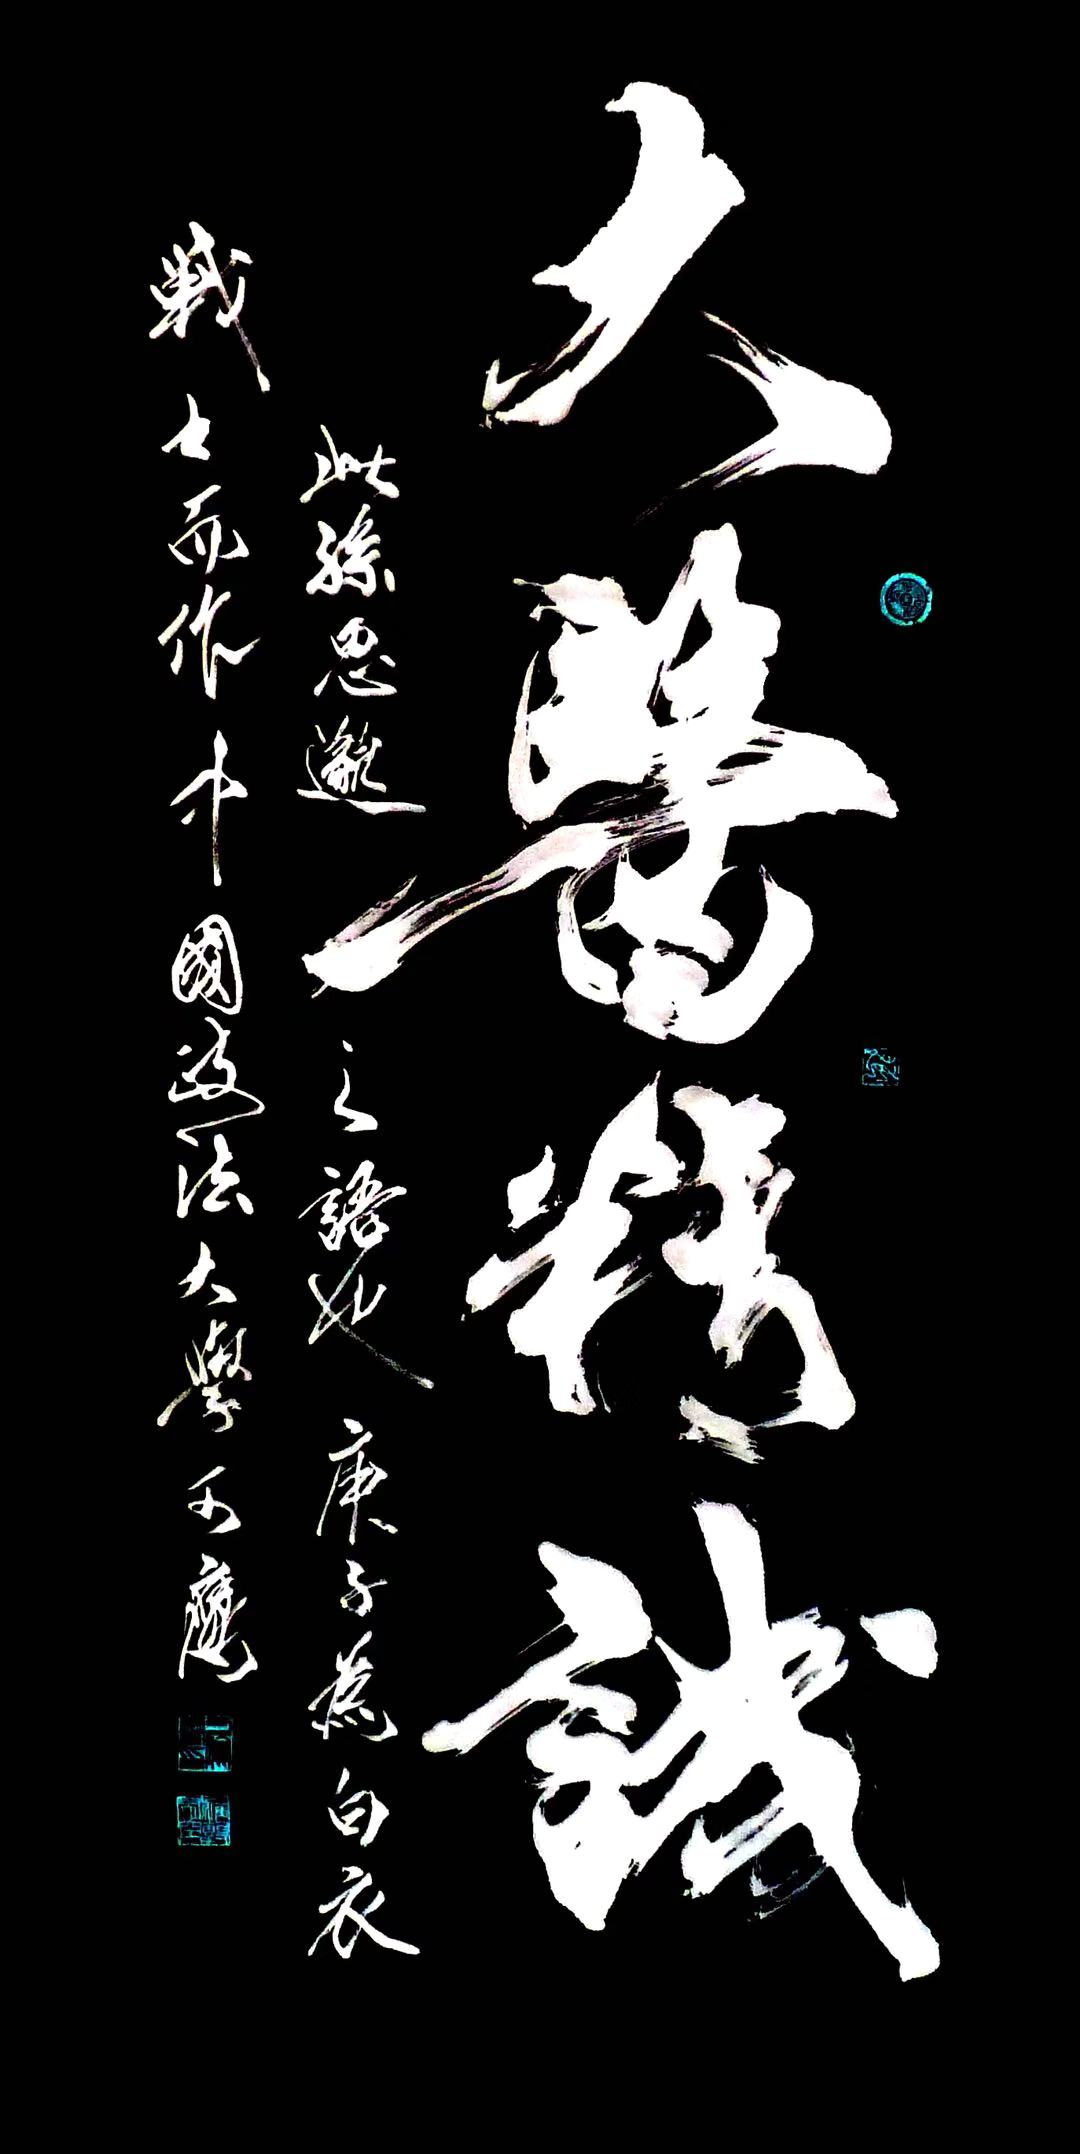 大醫精誠
此孫思邈之語也庚子為白衣
戰士而作中國政法大學